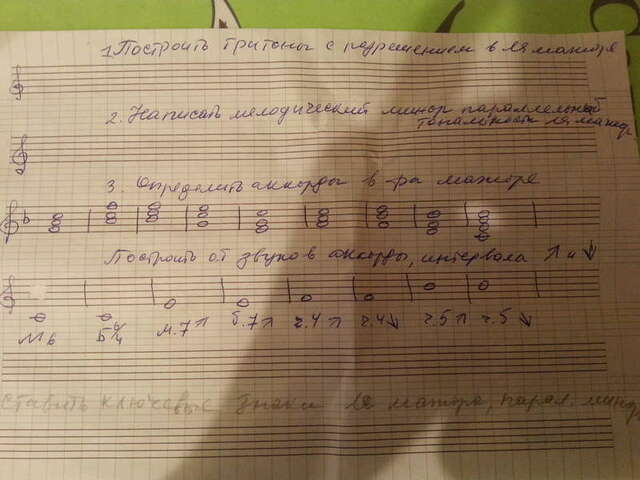 1. Построить тритоны с разрешением в ля мажоре
2. Написать мелодический минор параллельный
тональности ля мажор
3. Определить аккорды в фа мажоре
Построить от звуков аккорды, интервалы ↑ и ↓
М6 Б 4 м.7↑ б.7↑ ч.4↑ ч.4↓ ч.5↑ ч.5↓
ставить ключевые знаки ля мажора, парал. минор